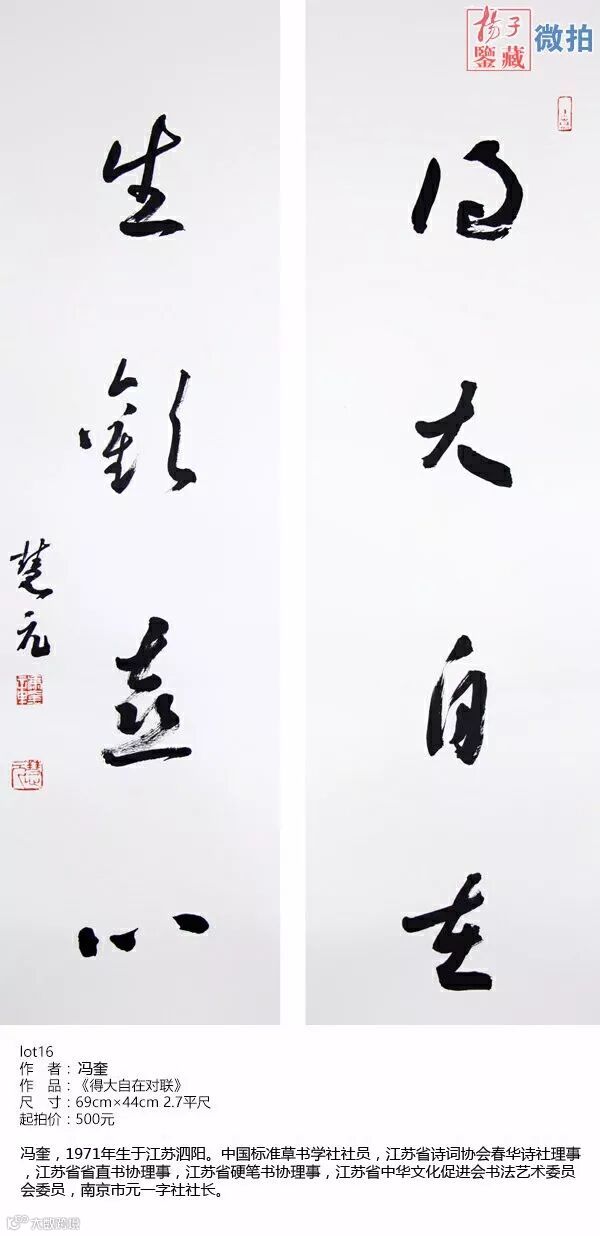 揚子
鑒藏
微拍
得大自在
生歡喜心
慧元
lot16
作 者：冯奎
作 品：《得大自在对联》
尺 寸：69cm×44cm 2.7平尺
起拍价：500元
冯奎，1971年生于江苏泗阳。中国标准草书学社社员，江苏省诗词协会春华诗社理事
，江苏省省直书协理事，江苏省硬笔书协理事，江苏省中华文化促进会书法艺术委员
会委员，南京市元一字社社长。